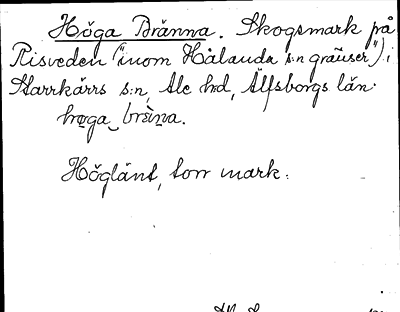 Höga Bränna. Skogsmark på
Risveden ("inom Hålanda s:n gränser") i
Starrkärrs s:n, Ale hd, Älfsborgs län.
Höglänt, torr mark.